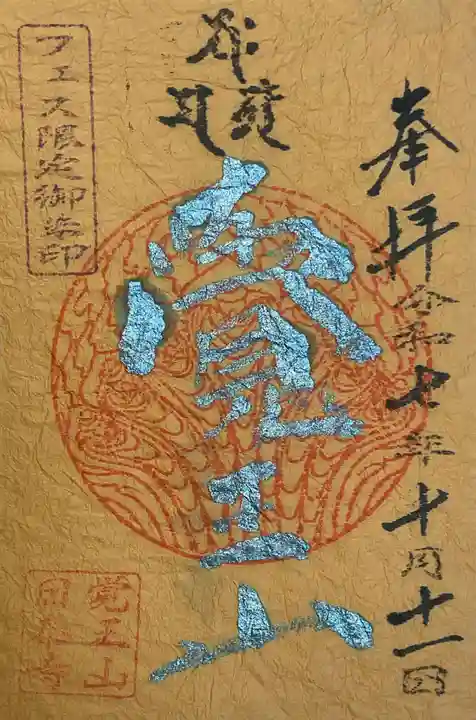 奉拝 令和七年十月十一日
覚王山
フェス限定御朱印
覚王山
日泰寺